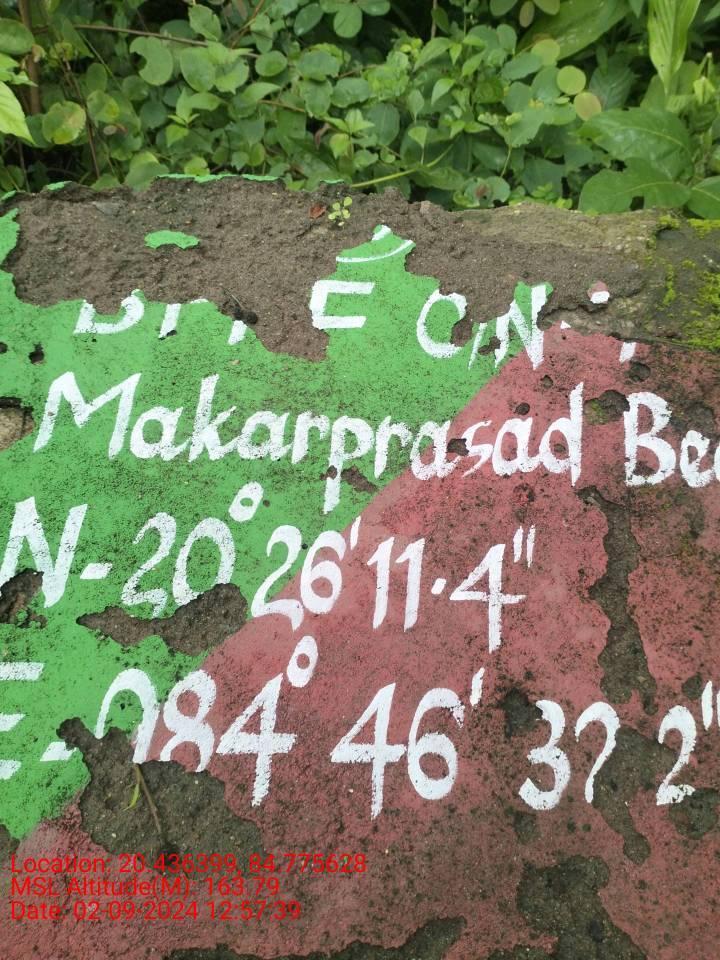 Makarprasad
N-20° 26' 11.4"
E-084° 46' 37 2"
Location: 20.436399, 84.775628
MSL Altitude(M): 163.79
Date: 02-09-2024 12:57:39